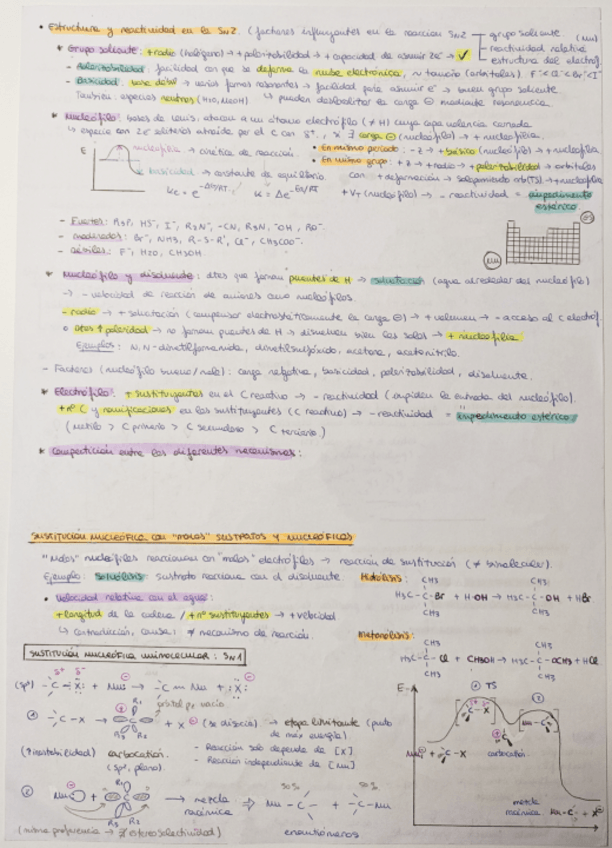 • Estructura y reactividad en la SN2. (factores influyentes en la reacción SN2
grupo saliente.
(Nu)
reactividad relativa
estructura del electrof.
* Grupo saliente: + radio (halógeno) → + polarizabilidad → + capacidad de asumir 2e⁻ → ✓
- Polarizabilidad: facilidad con que se deforma la nube electrónica, ~ tamaño (orbitales) F⁻<Cl⁻<Br⁻<I⁻
- Basicidad: base débil → varias formas resonantes → facilidad para asumir e⁻ → buen grupo saliente
También especies neutras (H2O, MeOH). ↳ pueden deslocalizar la carga ⊖ mediante resonancia.
* Nucleófilo: bases de Lewis. atacan a un átomo electrófilo (≠ H) cuya capa valencia cerrada
↳ especie con 2e⁻ solitarios atraída por el C con δ⁺, x ∃ carga ⊖ (nucleófilo) → + nucleofilia.
E
nucleofilia → cinética de reacción.
• En mismo periodo: - Z → + básico (nucleófilo) → + nucleofilia
basicidad → constante de equilibrio.
• En mismo grupo: + Z → + radio → + polarizabilidad → orbitales
con + deformación → solapamiento orb(TS) → + nucleofilia
+ VT (nucleófilo) → - reactividad = impedimento estérico
- Fuertes: R3P, HS⁻, I⁻, R2N⁻, -CN, R3N, ⁻OH, RO⁻.
- moderados: Br⁻, NH3, R-S-R', Cl⁻, CH3COO⁻.
- débiles: F⁻, H2O, CH3OH.
* Nucleófilo y disolvente: dtes que forman puentes de H → solvatación (agua alrededor del nucleófilo)
→ - velocidad de reacción de aniones como nucleófilos.
- radio → + solvatación (compensar electrostáticamente la carga ⊖) → + volumen → - acceso al C electróf.
o Dtes ↑ polaridad → no forman puentes de H → disuelven bien las sales → + nucleofilia
Ejemplos: N,N-dimetilformamida, dimetilsulfóxido, acetona, acetonitrilo.
- Factores (nucleófilo bueno/malo): carga negativa, basicidad, polarizabilidad, disolvente.
* Electrófilo: ↑ sustituyentes en el C reactivo → - reactividad (impiden la entrada del nucleófilo).
+ nº C y ramificaciones en los sustituyentes (C reactivo) → - reactividad = impedimento estérico.
(metilo > C primario > C secundario > C terciario.)
* Competición entre los diferentes mecanismos:
SUSTITUCIÓN NUCLEÓFILA CON "MALOS" SUSTRATOS Y NUCLEÓFILOS
"Malos" nucleófilos reaccionan con "malos" electrófilos → reacción de sustitución (≠ bimolecular).
Ejemplo: Solvólisis: sustrato reacciona con el disolvente.
Hidrólisis:
• Velocidad relativa con el agua:
+ longitud de la cadena / + nº sustituyentes → + velocidad
↳ contradicción, causa: ≠ mecanismo de reacción.
CH3 CH3
H3C-C-Br + H-OH → H3C-C-OH + HBr
CH3 CH3
Metanólisis:
CH3 CH3
H3C-C-Cl + CH3OH → H3C-C-OCH3 + HCl
CH3 CH3
SUSTITUCIÓN NUCLEÓFILA UNIMOLECULAR: SN1
δ⁺ δ⁻
(sp³) -C-X: + Nu⊖ → -C-Nu + :X:⊖
orbital pz vacío
① -C-X → R1 C R2 R3 + X⊖ (se disocia) → etapa limitante (punto de más energía)
(↑ inestabilidad) carbocatión. (sp², plano).
- Reacción solo depende de [X]
- Reacción independiente de [Nu]
② Nu:⊖ + R1 C R2 R3 → mezcla racémica ⇒ Nu-C- + -C-Nu
50% 50%
enantiómeros
(misma proporción → ∄ estereoselectividad)
E
① TS
②
Nu:⊖ + -C-X
carbocatión.
mezcla racémica Nu-C- + X⊖